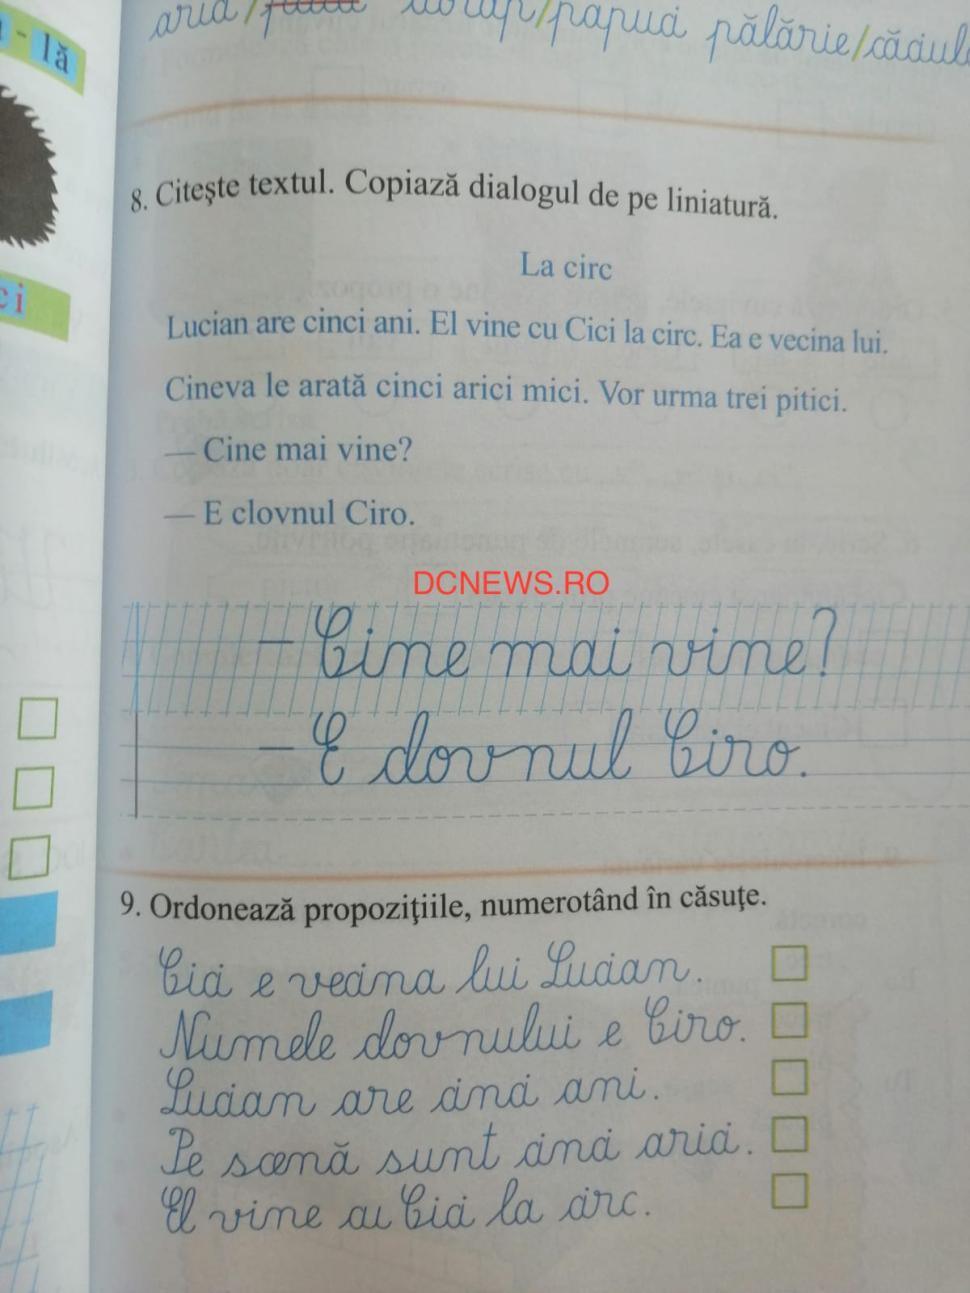 arici/ /papuci pălărie/
- lă
8. Citeşte textul. Copiază dialogul de pe liniatură.
La circ
ci
Lucian are cinci ani. El vine cu Cici la circ. Ea e vecina lui.
Cineva le arată cinci arici mici. Vor urma trei pitici.
— Cine mai vine?
— E clovnul Ciro.
DCNEWS.RO
– Cine mai vine?
– E clovnul Ciro.
9. Ordonează propoziţiile, numerotând în căsuţe.
Cici e vecina lui Lucian.
Numele clovnului e Ciro.
Lucian are cinci ani.
Pe scenă sunt cinci arici.
El vine cu Cici la circ.